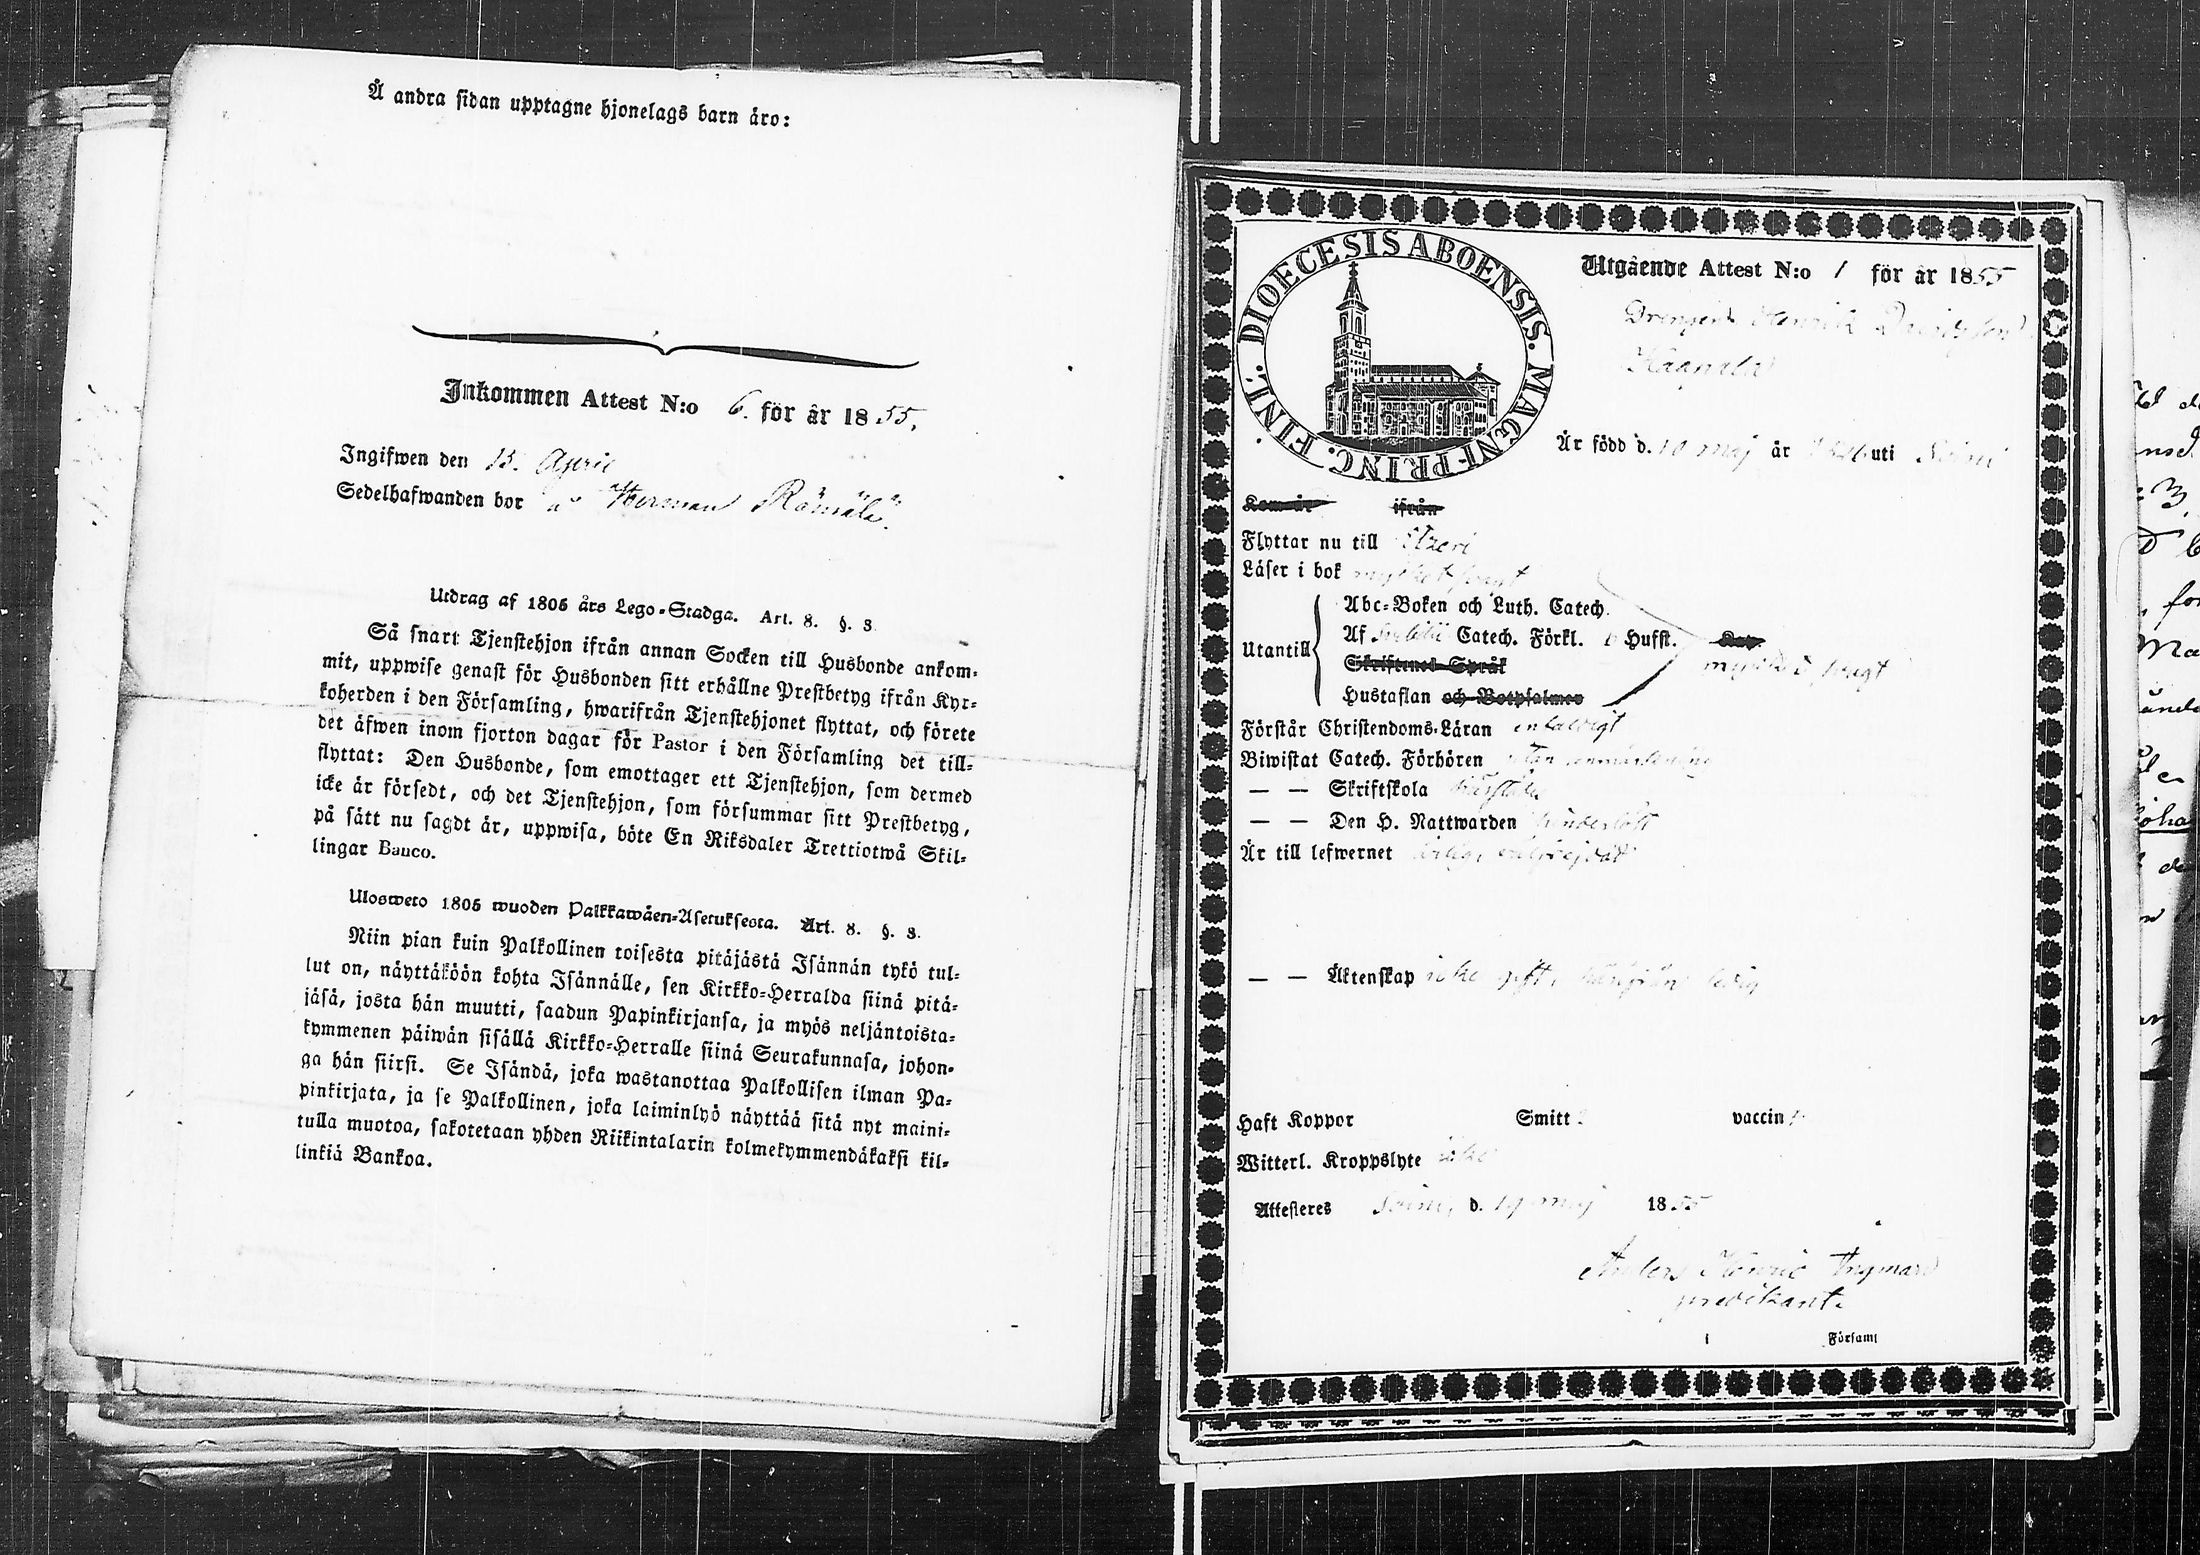 Å andra sidan upptagne hjonelags barn äro:
Inkommen Attest N:o 6. för år 1855.
Ingifwen den 15. April
Sedelhafwanden bor å Herman Rämälä.
Utdrag af 1805 års Lego-Stadga. Art. 8. §. 8.
Så snart Tjenstehjon ifrån annan Socken till Husbonde ankom-
mit, uppwise genast för Husbonden sitt erhållne Prestbetyg ifrån Kyr-
koherden i den Församling, hwarifrån Tjenstehjonet flyttat, och förete
det äfwen inom fjorton dagar för Pastor i den Församling det till-
flyttat: Den Husbonde, som emottager ett Tjenstehjon, som dermed
icke är försedt, och det Tjenstehjon, som försummar sitt Prestbetyg,
på sätt nu sagdt är, uppwisa, böte En Riksdaler Trettiotwå Skil-
lingar Banco.
Ulosweto 1805 wuoden Palkkawäen-Asetuksesta. Art. 8. §. 8.
Niin pian kuin Palkollinen toisesta pitäjästä Isännän tykö tul-
lut on, näyttäköön kohta Isännälle, sen Kirkko-Herralda siinä pitä-
jäsä, josta hän muutti, saadun Papinkirjansa, ja myös neljäntoista-
kymmenen päiwän sisällä Kirkko-Herralle siinä Seurakunnasa, johon-
ga hän siirsi. Se Isändä, joka wastanottaa Palkollisen ilman Pa-
pinkirjata, ja se Palkollinen, joka laiminlyö näyttää sitä nyt maini-
tulla muotoa, sakotetaan yhden Riikintalarin kolmekymmendäkaksi kil-
linkiä Bankoa.
DIOECESIS ABOENSIS. MAGNI-PRINC. FINL.
Utgående Attest N:o 1 för år 1855
Drengen Henrik Davidsson
Är född d. 10 maj år uti Soini
Kom år ifrån
Flyttar nu till Etzeri
Läser i bok mycket svagt
Abc-Boken och Luth. Catech.
Utantill Af Catech. Förkl. o Husst.
mycket svagt
Skriftenes Språk
Hustaflan och Botpsalmer
Förstår Christendoms-Läran enfaldigt
Biwistat Catech. Förhören utan anmärkning
— — Skriftskola
— — Den H. Nattwarden
Är till lefwernet ärlig,
— — Äktenskap icke gift, ledig
Haft Koppor Smitt vaccin
Witterl. Kroppslyte icke
Attesteres Soini, d. 19 maj 1855
Anders Henric Ingman
predikant.
i Församl